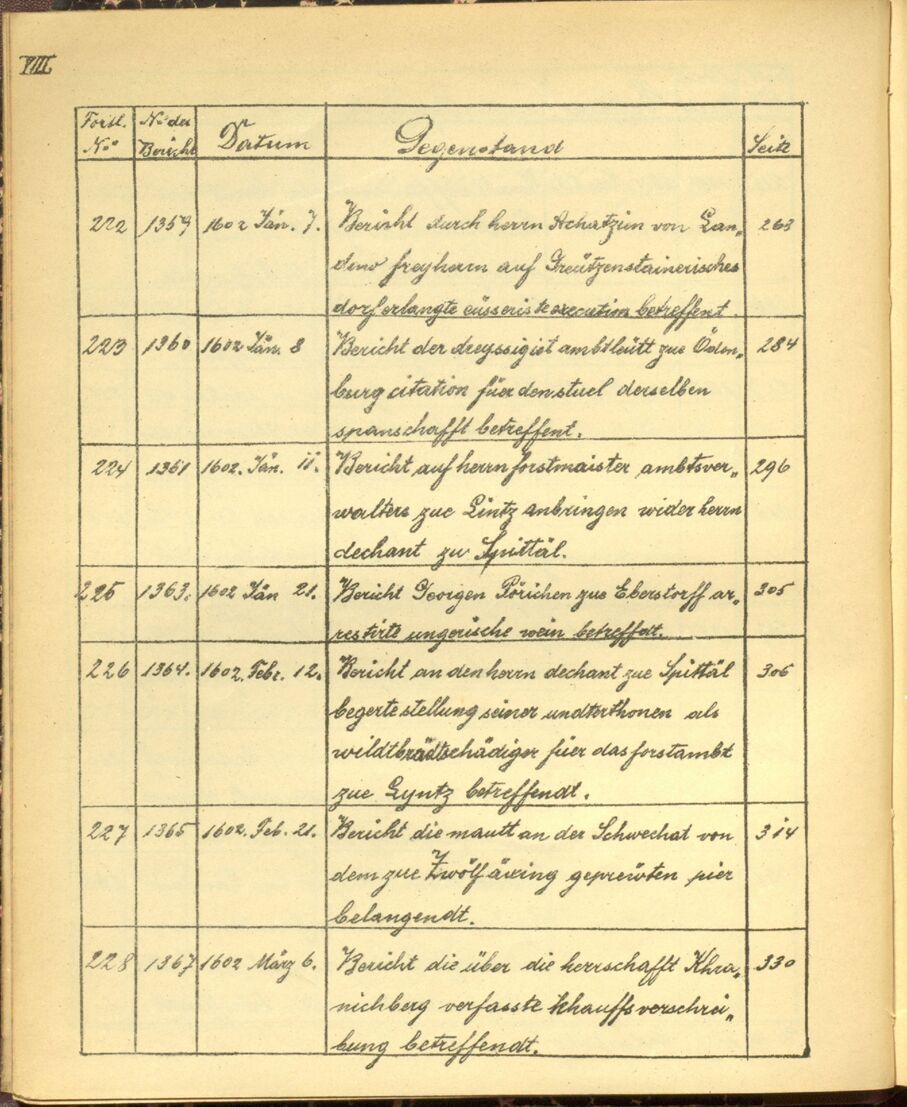 VIII
Fortl. No. der Datum Gegenstand Seite
No. Bericht
222 1359 1602 Jän. 7. Bericht durch herrn Achatzien von Lan„ 263
daw freyherrn auf Greützenstainerisches
dorf erlangte eüsseriste execution betreffent.
223 1360 1602 Jän. 8 Bericht der dreyssigist ambtleütt zue Öden„ 284
burg citation für den stuel derselben
spanschafft betreffent.
224 1361 1602. Jän. 11. Bericht auf herrn forstmaister ambtsver„ 296
walters zue Lintz anbringen wider herrn
dechant zu Spittäl.
225 1363. 1602 Jän 21. Bericht Georgen Pörichen zue Eberstorff ar„ 305
restirte ungerische wein betreffdt.
226 1364. 1602. Febr. 12. Bericht an den herrn dechant zue Spittäl 306
begerte stellung seiner undterthonen als
wildtbrädtschädiger für das forstambt
zue Lyntz betreffendt.
227 1365 1602. Feb. 21. Bericht die mautt an der Schwechat von 314
dem zue Zwölfäxing geprewten pier
belangendt.
228 1367 1602 März 6. Bericht die über die herrschafft Khra„ 330
nichberg verfasste khauffsverschrei„
bung betreffendt.